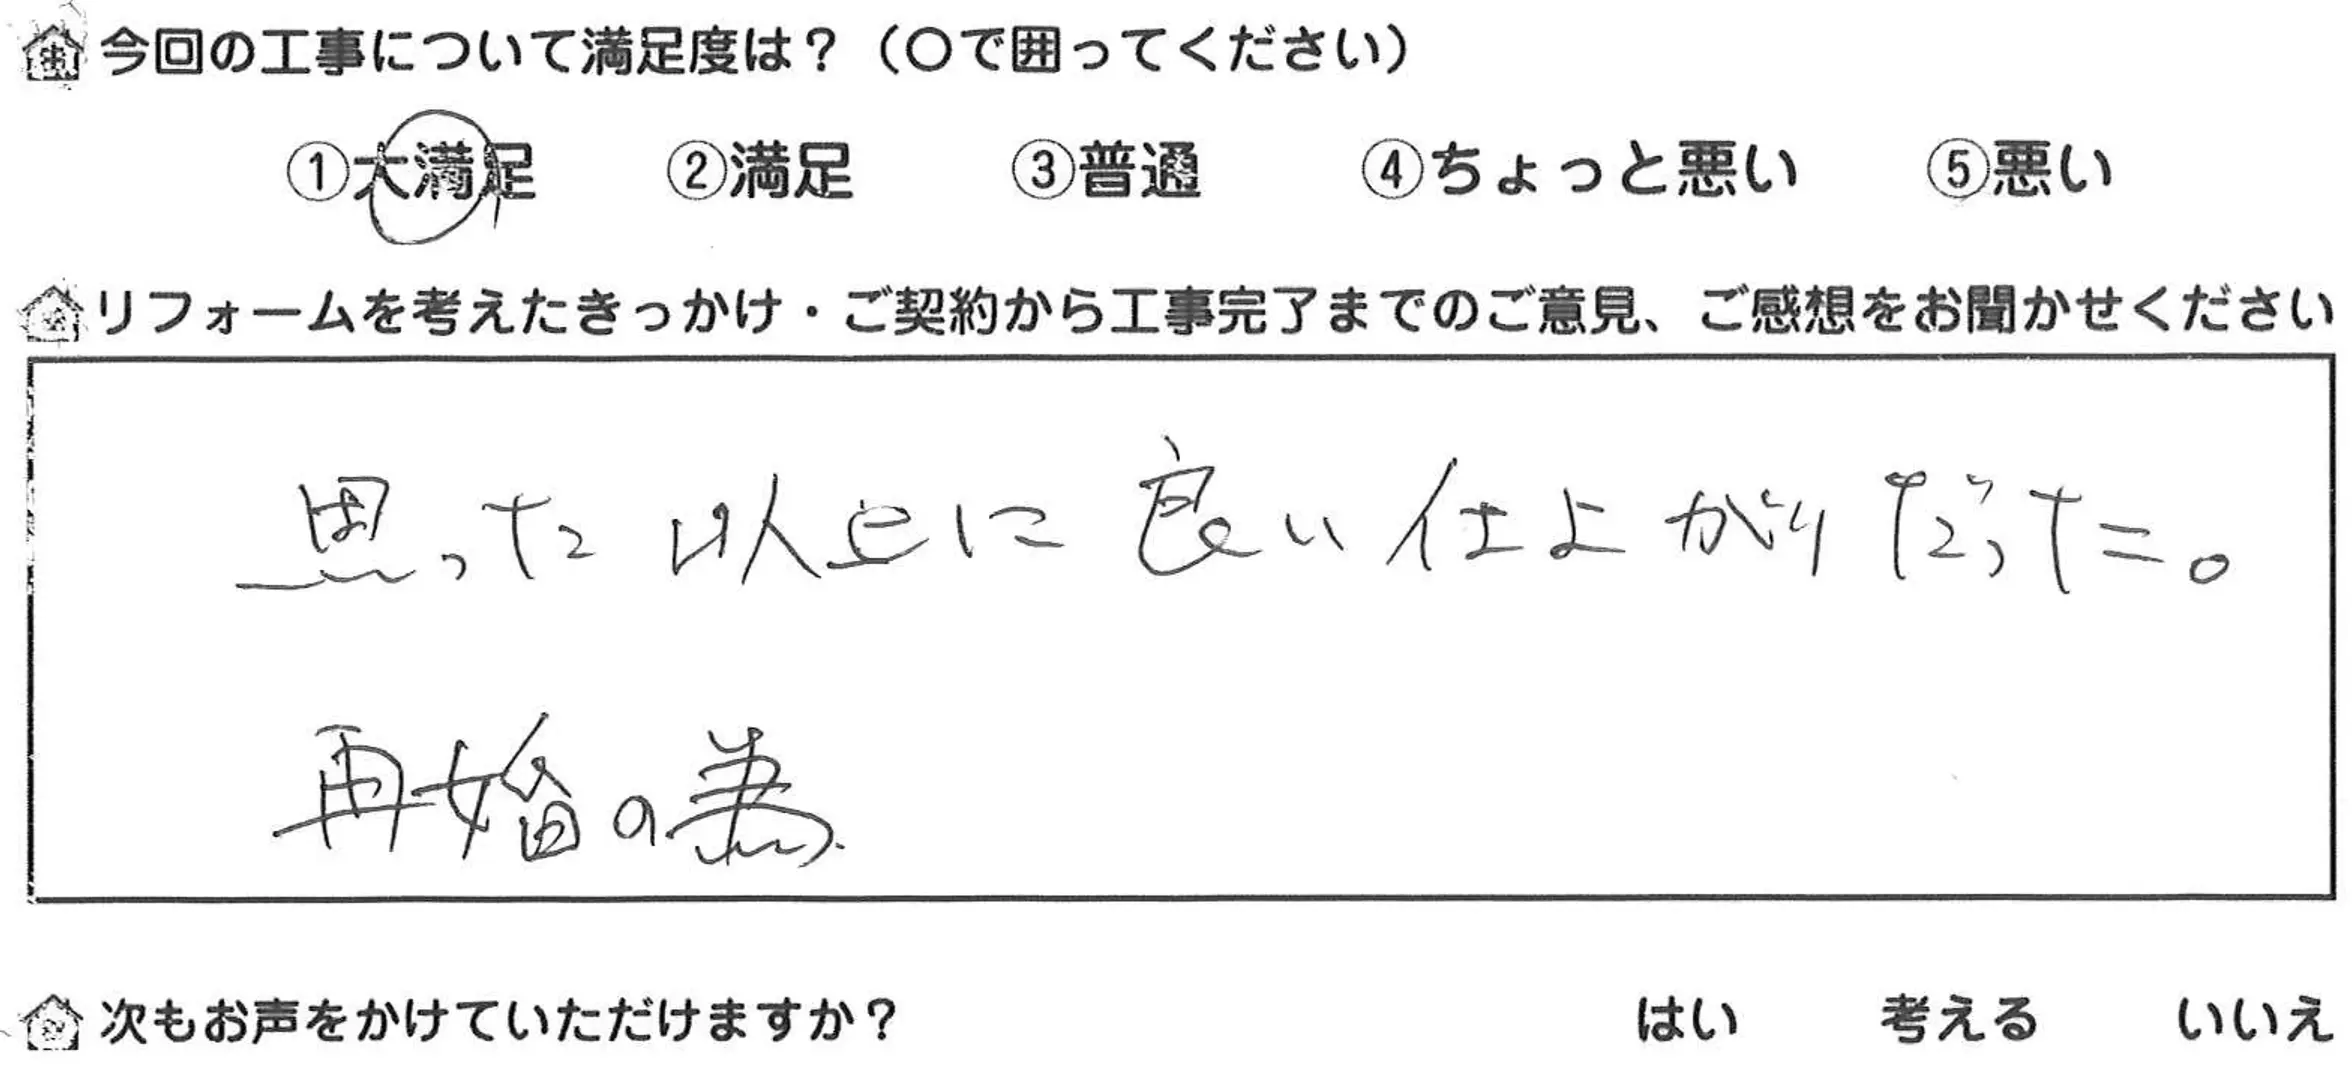 今回の工事について満足度は？（〇で囲ってください）
①大満足 ②満足 ③普通 ④ちょっと悪い ⑤悪い
リフォームを考えたきっかけ・ご契約から工事完了までのご意見、ご感想をお聞かせください
思った以上に良い仕上がりだった。
再婚の為
次もお声をかけていただけますか？ はい 考える いいえ